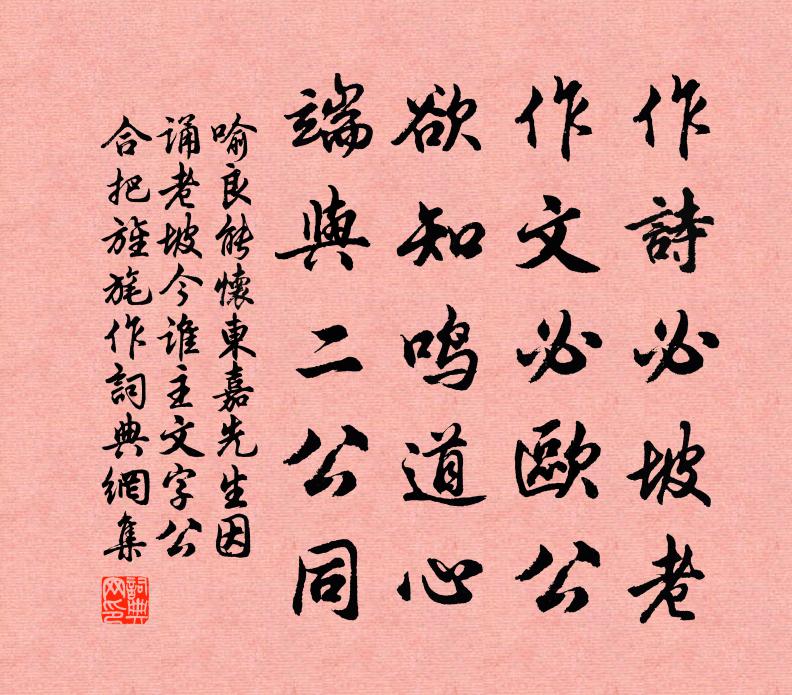 作詩必坡老
作文必歐公
欲知鳴道心
端與二公同
喻良能懷東嘉先生因
誦老坡今誰主文字公
合把旌旄作詞典網集
詞典網印